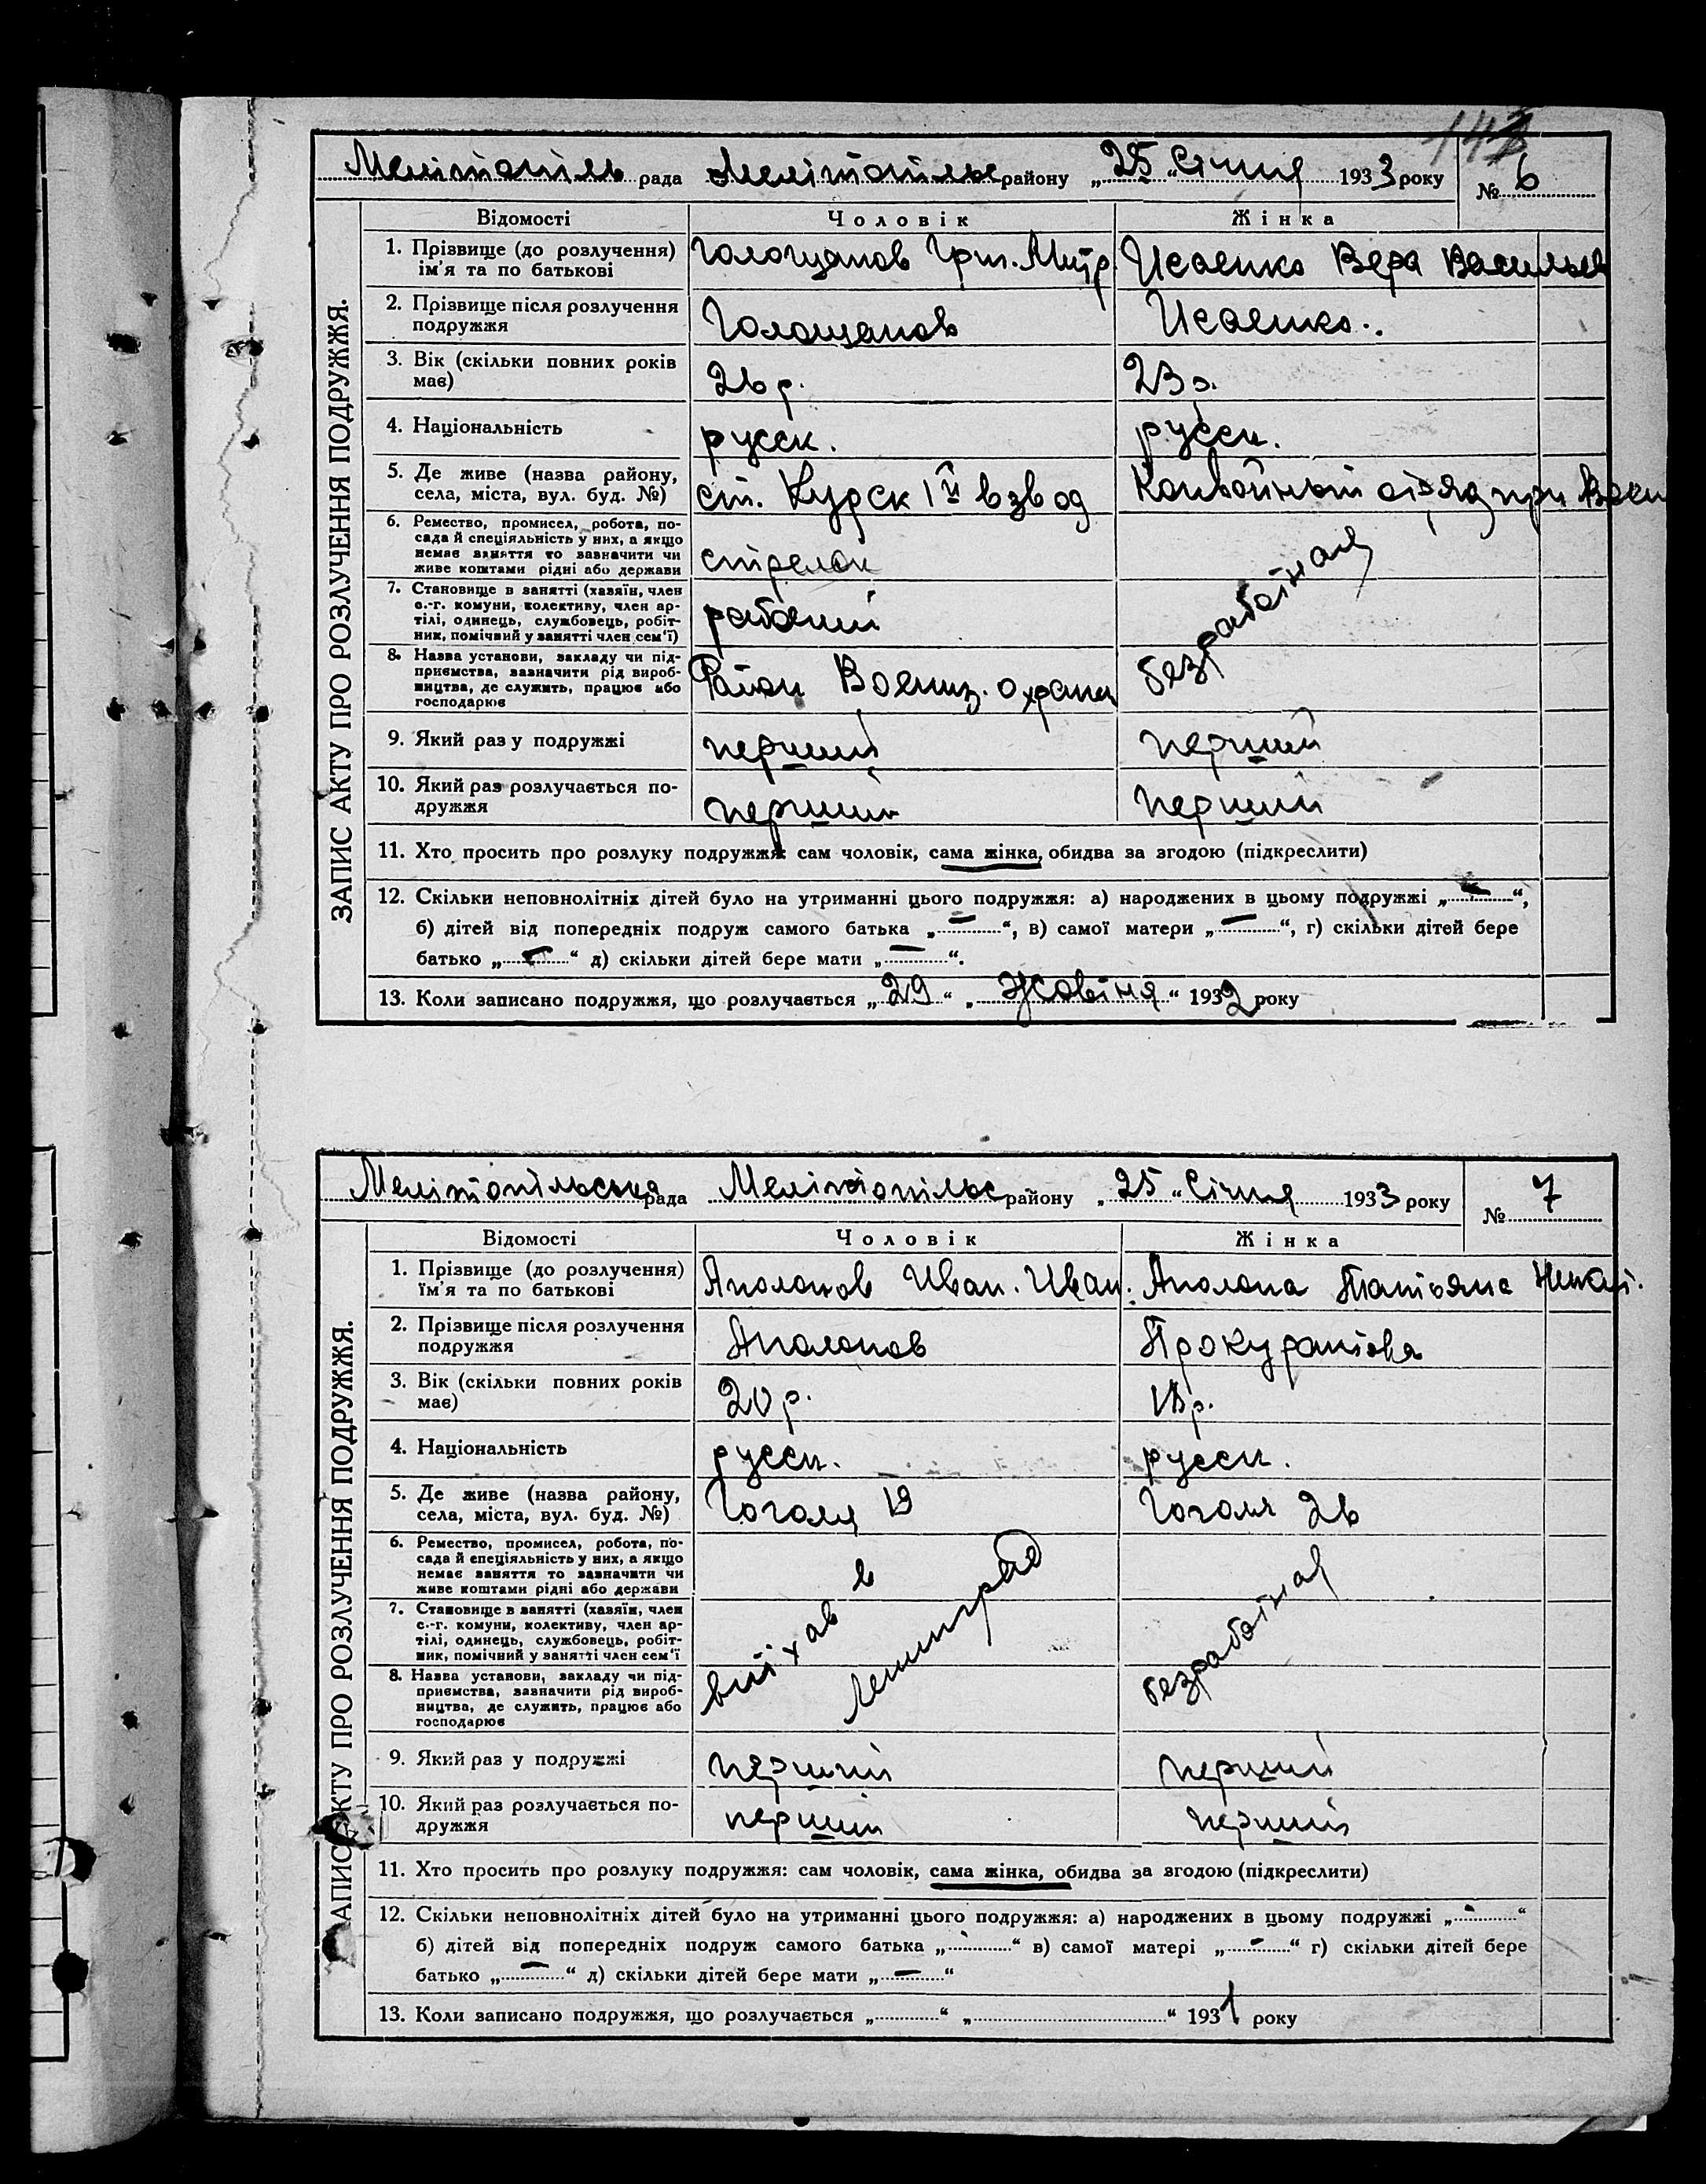 Мелітопіль рада Мелітопільс району „25“ Січня 1933 року № 6
Відомості Чоловік Жінка
1. Прізвище (до розлучення) ім'я та по батькові Голощапов Григ. Митр. Исаенко Вера Васильев
2. Прізвище після розлучення подружжя Голощапов Исаенко
3. Вік (скільки повних років має) 26 р. 23 р.
4. Національність русск. русск.
5. Де живе (назва району, села, міста, вул. буд. №) ст. Курск 1й взвод Конвойный отряд при Воен
6. Ремество, промисел, робота, по-
сада й спеціяльність у них, а якщо
немає заняття то зазначити чи
живе коштами рідні або держави стрелок безработная
7. Становище в занятті (хазяїн, член
с.-г. комуни, колективу, член ар-
тілі, одинець, службовець, робіт-
ник, помічний у занятті член сем'ї) рабочий
8. Назва установи, закладу чи під-
приємства, зазначити рід вироб-
ництва, де служить, працює або
господарює Район Воениз. охраны
9. Який раз у подружжі перший перший
10. Який раз розлучається по-
дружжя перший перший
11. Хто просить про розлуку подружжя: сам чоловік, сама жінка, обидва за згодою (підкреслити)
12. Скільки неповнолітніх дітей було на утриманні цього подружжя: а) народжених в цьому подружжі „—“,
б) дітей від попередніх подруж самого батька „—“, в) самої матери „—“, г) скільки дітей бере
батько „—“ д) скільки дітей бере мати „—“.
13. Коли записано подружжя, що розлучається „29“ „Жовтня“ 1932 року
ЗАПИС АКТУ ПРО РОЗЛУЧЕННЯ ПОДРУЖЖЯ.
Мелітопільська рада Мелітопільс району „25“ Січня 1933 року № 7
Відомості Чоловік Жінка
1. Прізвище (до розлучення) ім'я та по батькові Аполонов Иван. Иван. Аполона Татьяна Никит.
2. Прізвище після розлучення подружжя Аполонов Прокуратова
3. Вік (скільки повних років має) 20 р. 18 р.
4. Національність русск. русск.
5. Де живе (назва району, села, міста, вул. буд. №) Гоголя 19 Гоголя 26
6. Ремество, промисел, робота, по-
сада й спеціяльність у них, а якщо
немає заняття то зазначити чи
живе коштами рідні або держави виїхав в Ленинград безработная
7. Становище в занятті (хазяїн, член
с.-г. комуни, колективу, член ар-
тілі, одинець, службовець, робіт-
ник, помічний у занятті член сем'ї
8. Назва установи, закладу чи під-
приємства, зазначити рід вироб-
ництва, де служить, працює або
господарює
9. Який раз у подружжі перший перший
10. Який раз розлучається по-
дружжя перший перший
11. Хто просить про розлуку подружжя: сам чоловік, сама жінка, обидва за згодою (підкреслити)
12. Скільки неповнолітніх дітей було на утриманні цього подружжя: а) народжених в цьому подружжі „—“
б) дітей від попередніх подруж самого батька „—“ в) самої матері „—“ г) скільки дітей бере
батько „—“ д) скільки дітей бере мати „—“
13. Коли записано подружжя, що розлучається „“ „“ 1931 року
АПИС АКТУ ПРО РОЗЛУЧЕННЯ ПОДРУЖЖЯ.